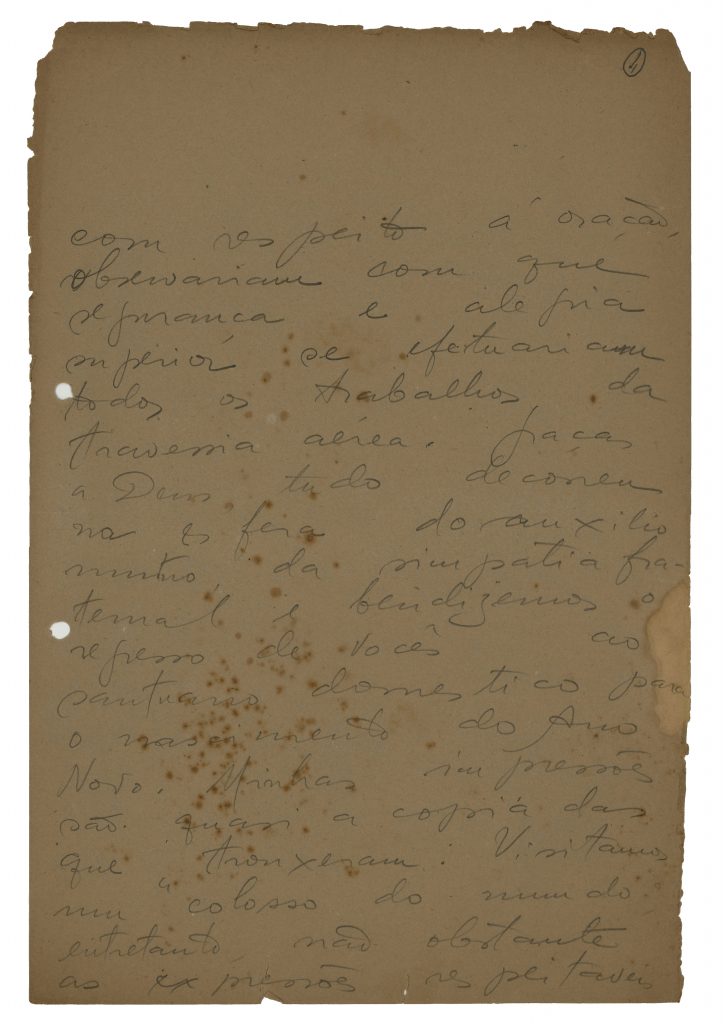 4
com respeito á oração,
observariam com que
segurança e alegria
superior se efetuariam
todos os trabalhos da
travessia aérea. Graças
a Deus, tudo decorreu
na esfera do auxilio
mutuo, da simpatia fra-
ternal e bendizemos o
regresso de vocês ao
santuario domestico para
o nascimento do Ano
Novo. Minhas impressões
são quasi a copia das
que trouxeram: Visitamos
um "colosso do mundo
entretanto, não obstante
as expressões respeitaveis